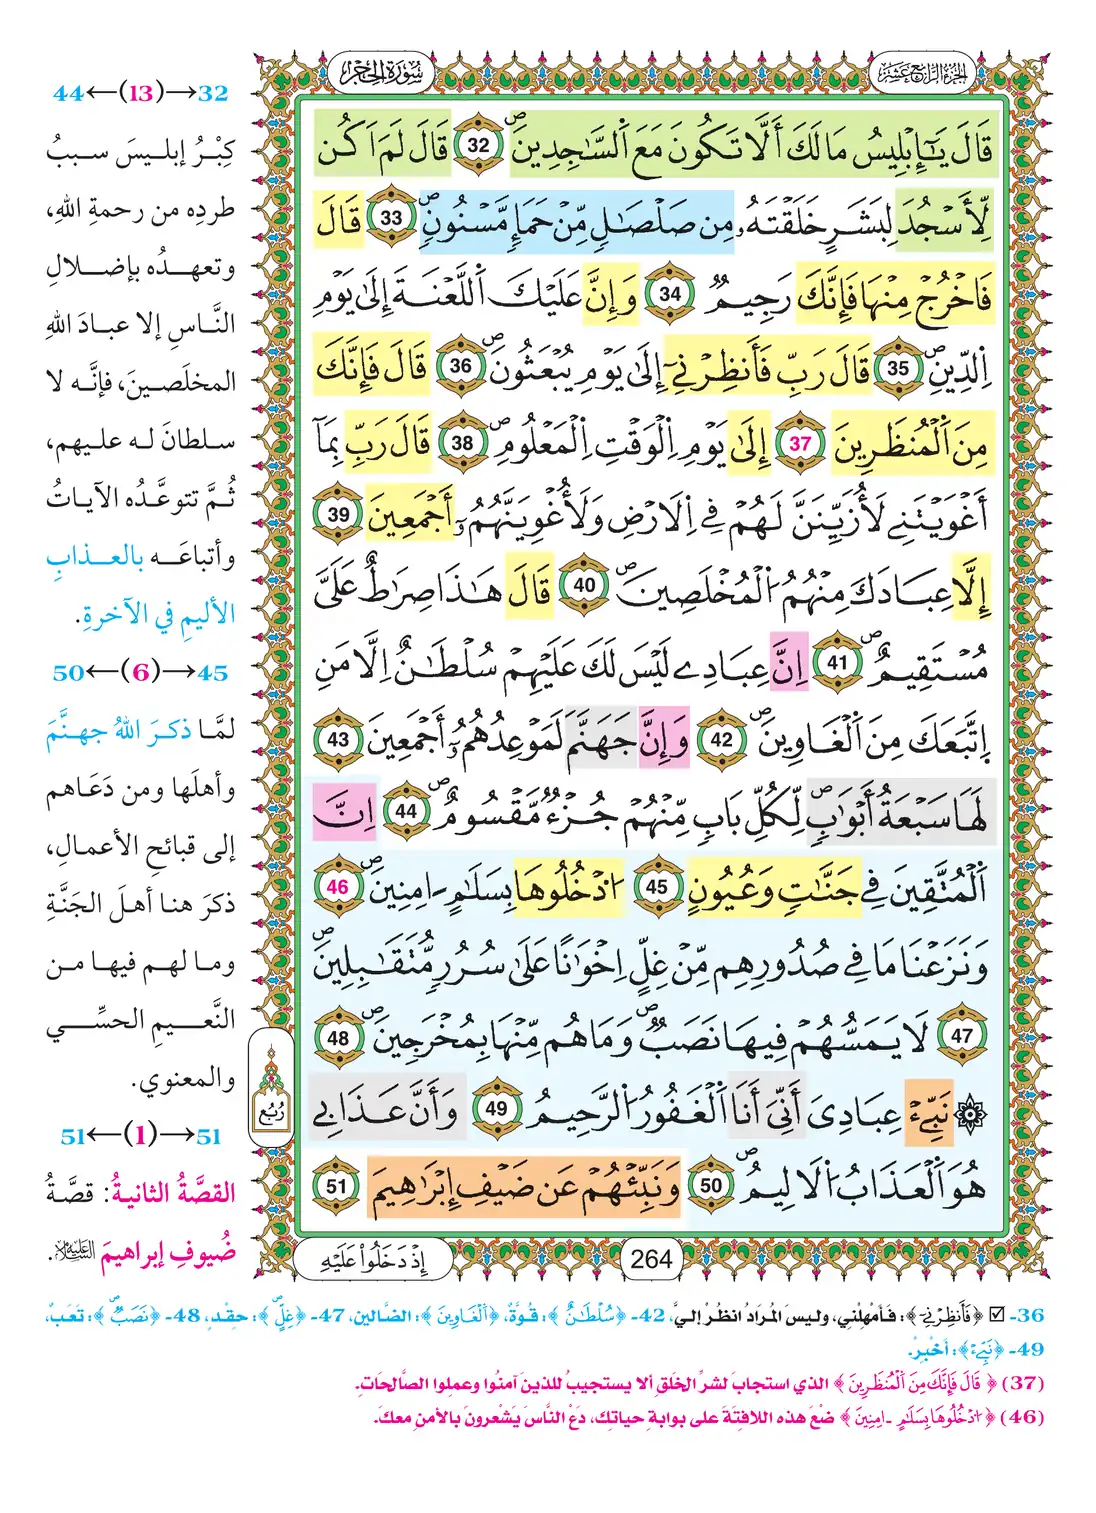 الجزء الرابع عشر
سورة الحجر
قَالَ يَٰٓإِبْلِيسُ مَا لَكَ أَلَّا تَكُونَ مَعَ اَ۬لسَّٰجِدِينَۖ 32 قَالَ لَمَ اَكُن
لِّأَسْجُدَ لِبَشَرٍ خَلَقْتَهُۥ مِن صَلْصَٰلٍ مِّنْ حَمَإٍ مَّسْنُونٍۖ 33 قَالَ
فَاخْرُجْ مِنْهَا فَإِنَّكَ رَجِيمٌ 34 وَإِنَّ عَلَيْكَ اَ۬للَّعْنَةَ إِلَىٰ يَوْمِ
اِ۬لدِّينِۖ 35 قَالَ رَبِّ فَأَنظِرْنِےٓ إِلَىٰ يَوْمِ يُبْعَثُونَۖ 36 قَالَ فَإِنَّكَ
مِنَ اَ۬لْمُنظَرِينَ 37 إِلَىٰ يَوْمِ اِ۬لْوَقْتِ اِ۬لْمَعْلُومِۖ 38 قَالَ رَبِّ بِمَآ
أَغْوَيْتَنِے لَأُزَيِّنَنَّ لَهُمْ فِے اِ۬لَارْضِ وَلَأُغْوِيَنَّهُمُۥٓ أَجْمَعِينَ 39
إِلَّا عِبَادَكَ مِنْهُمُ اُ۬لْمُخْلَصِينَۖ 40 قَالَ هَٰذَا صِرَٰطٌ عَلَيَّ
مُسْتَقِيمٌۖ 41 اِنَّ عِبَادِے لَيْسَ لَكَ عَلَيْهِمْ سُلْطَٰنٌ اِلَّا مَنِ
اِ۪تَّبَعَكَ مِنَ اَ۬لْغَاوِينَۖ 42 وَإِنَّ جَهَنَّمَ لَمَوْعِدُهُمُۥٓ أَجْمَعِينَ 43
لَهَا سَبْعَةُ أَبْوَٰبٍۖ لِّكُلِّ بَابٍ مِّنْهُمْ جُزْءٌ مَّقْسُومٌۖ 44 اِنَّ
اَ۬لْمُتَّقِينَ فِے جَنَّٰتٍ وَعُيُونٍ 45 اُ۟دْخُلُوهَا بِسَلَٰمٍ ـ اٰمِنِينَۖ 46
وَنَزَعْنَا مَا فِے صُدُورِهِم مِّنْ غِلٍّ اِخْوَٰنًا عَلَىٰ سُرُرٍ مُّتَقَٰبِلِينَۖ
47 لَا يَمَسُّهُمْ فِيهَا نَصَبٌۖ وَمَا هُم مِّنْهَا بِمُخْرَجِينَۖ 48
۞ نَبِّۓْ عِبَادِيَ أَنِّيَ أَنَا اَ۬لْغَفُورُ اُ۬لرَّحِيمُ 49 وَأَنَّ عَذَابِے
هُوَ اَ۬لْعَذَابُ اُ۬لَالِيمُۖ 50 وَنَبِّئْهُمْ عَن ضَيْفِ إِبْرَٰهِيمَ 51
264
إِذْ دَخَلُواْ عَلَيْهِ
رُبُع
44←(13)→32
كِبْرُ إبليسَ سببُ
طردِه من رحمةِ اللهِ،
وتعهدُه بإضلالِ
النَّاسِ إلا عبادَ اللهِ
المخلَصينَ، فإنَّه لا
سلطانَ له عليهم،
ثُمَّ تتوعَّدُه الآياتُ
وأتباعَه بالعذابِ
الأليمِ في الآخرةِ.
50←(6)→45
لمَّا ذكرَ اللهُ جهنَّمَ
وأهلَها ومن دَعَاهم
إلى قبائحِ الأعمالِ،
ذكرَ هنا أهلَ الجَنَّةِ
وما لهم فيها من
النَّعيمِ الحسِّي
والمعنوي.
51←(1)→51
القصَّةُ الثانيةُ: قصَّةُ
ضُيوفِ إبراهيمَ عليه السلام.
36- ☑ ﴿فَأَنظِرْنِےٓ﴾: فَأمْهِلْنِي، وليسَ المُرادُ انظُرْ إليَّ، 42- ﴿سُلْطَٰنٌ﴾: قُوَّةٌ، ﴿اَ۬لْغَاوِينَ﴾: الضَّالين، 47- ﴿غِلٍّ﴾: حِقْدٍ، 48- ﴿نَصَبٌۖ﴾: تَعَبٌ،
49- ﴿نَبِّۓْ﴾: أَخْبِرْ.
(37) ﴿قَالَ فَإِنَّكَ مِنَ اَ۬لْمُنظَرِينَ﴾ الذي استجابَ لشرِّ الخَلقِ ألا يستجيبُ للذينَ آمنُوا وعملُوا الصَّالحَاتِ.
(46) ﴿اُ۟دْخُلُوهَا بِسَلَٰمٍ ـ اٰمِنِينَ﴾ ضَعْ هذه اللافتَةَ على بوابةِ حياتِك، دَعْ النَّاسَ يَشْعرونَ بالأمنِ معكَ.